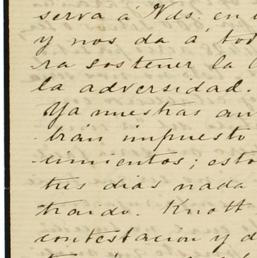 serva á Vds. en
y nos da á tod
ra sostener la
la adversidad.
Ya nuestras
brán impuesto
cimientos; esto
tus dias nada
traido. Knott
contestacion y d